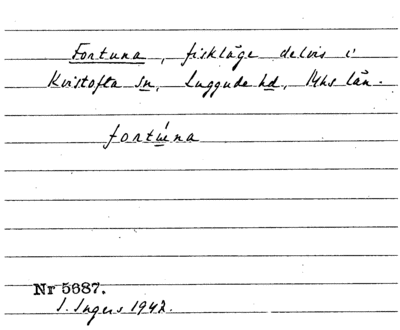 Fortuna, fiskläge delvis i
Kvistofta sn, Luggude hd, Mhs län.
fortúna
Nr 5687.
I. Ingers 1942.